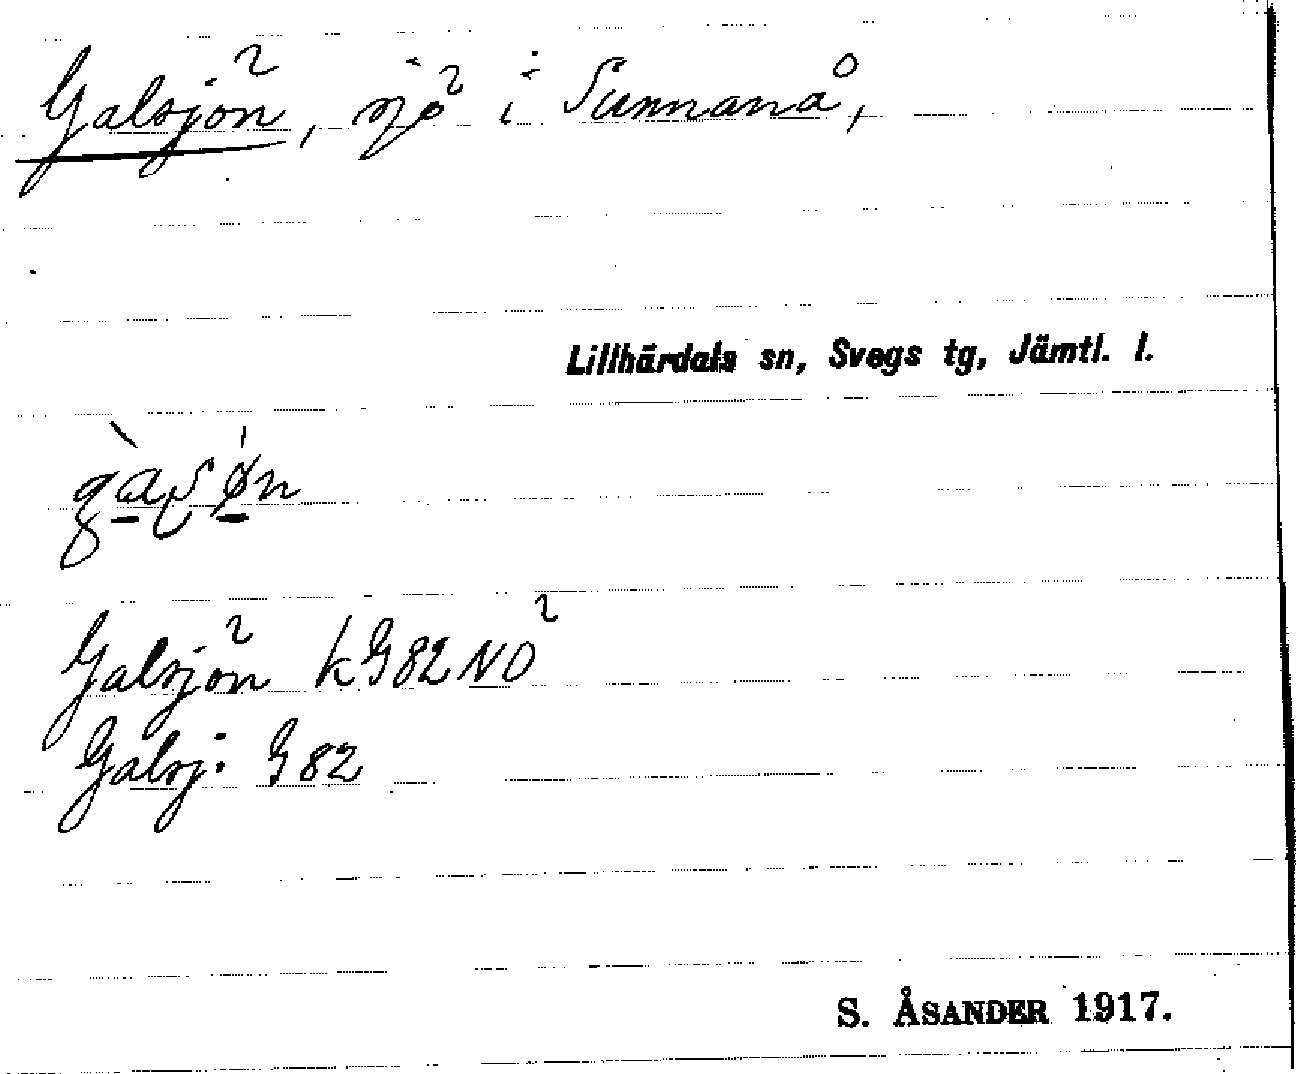 Galsjön, sjö i Sunnanå,
Lillhärdals sn, Svegs tg, Jämtl. l.
Galsjön kG82NO
Galsj: G82
S. ÅSANDER 1917.